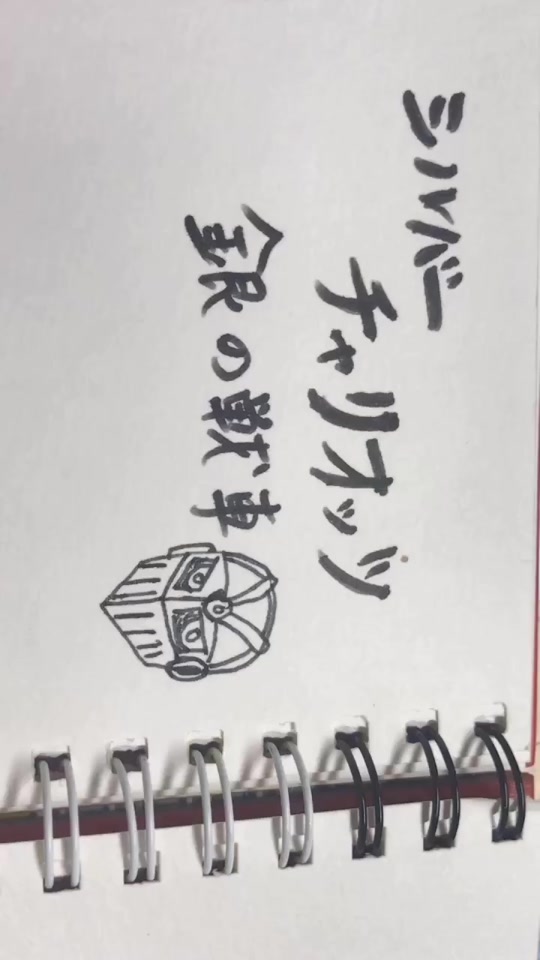 シルバー
チャリオッツ
銀の戦車